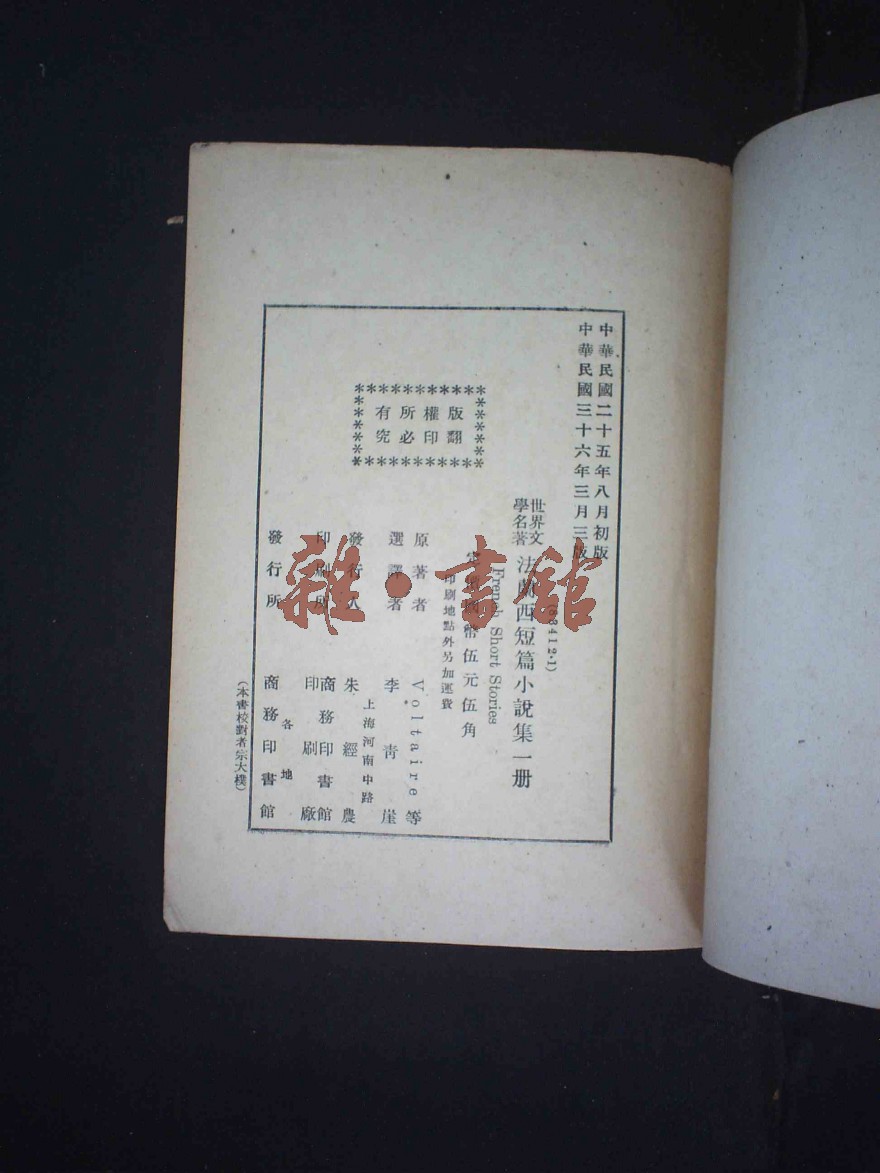 中華民國二十五年八月初版
中華民國三十六年三月三版
(63412·1)
世界文
學名著
法蘭西短篇小說集一册
French Short Stories
定價國幣伍元伍角
印刷地點外另加運費
版權所有
翻印必究
原著者 Voltaire等
選譯者 李青崖
上海河南中路
發行人 朱經農
印刷所 商務印書館
印刷廠
發行所 各地
商務印書館
(本書校對者宗大樸)
雜·書館